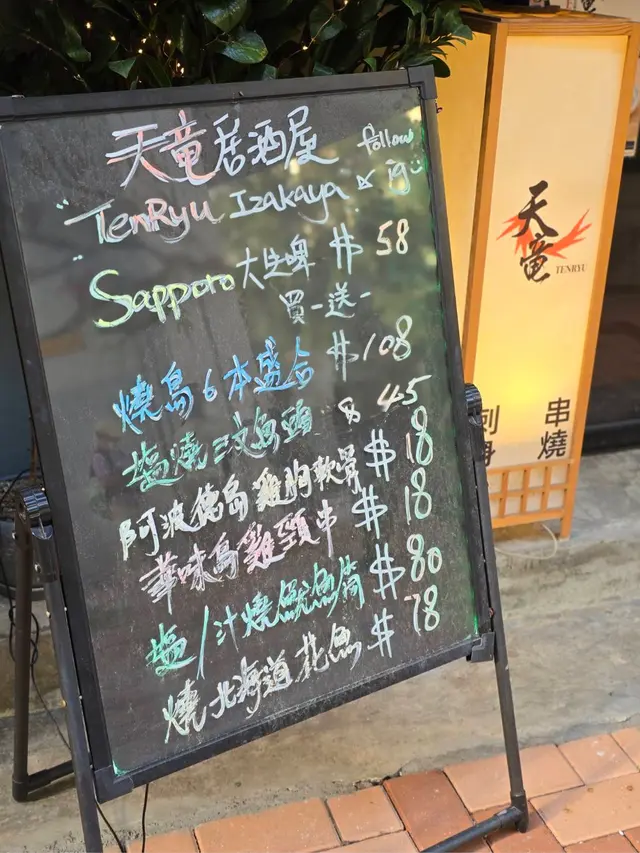 天竜居酒屋
follow ig
"TenRyu Izakaya"
Sapporo 大生啤 $58
買一送一
燒鳥6本盛合 $108
塩燒三文魚頭 $45
阿波德島雞胸軟骨 $18
華味鳥雞頸串 $18
塩/汁燒魷魚筒 $80
燒北海道花魚 $78
天竜
TENRYU
串燒
刺身